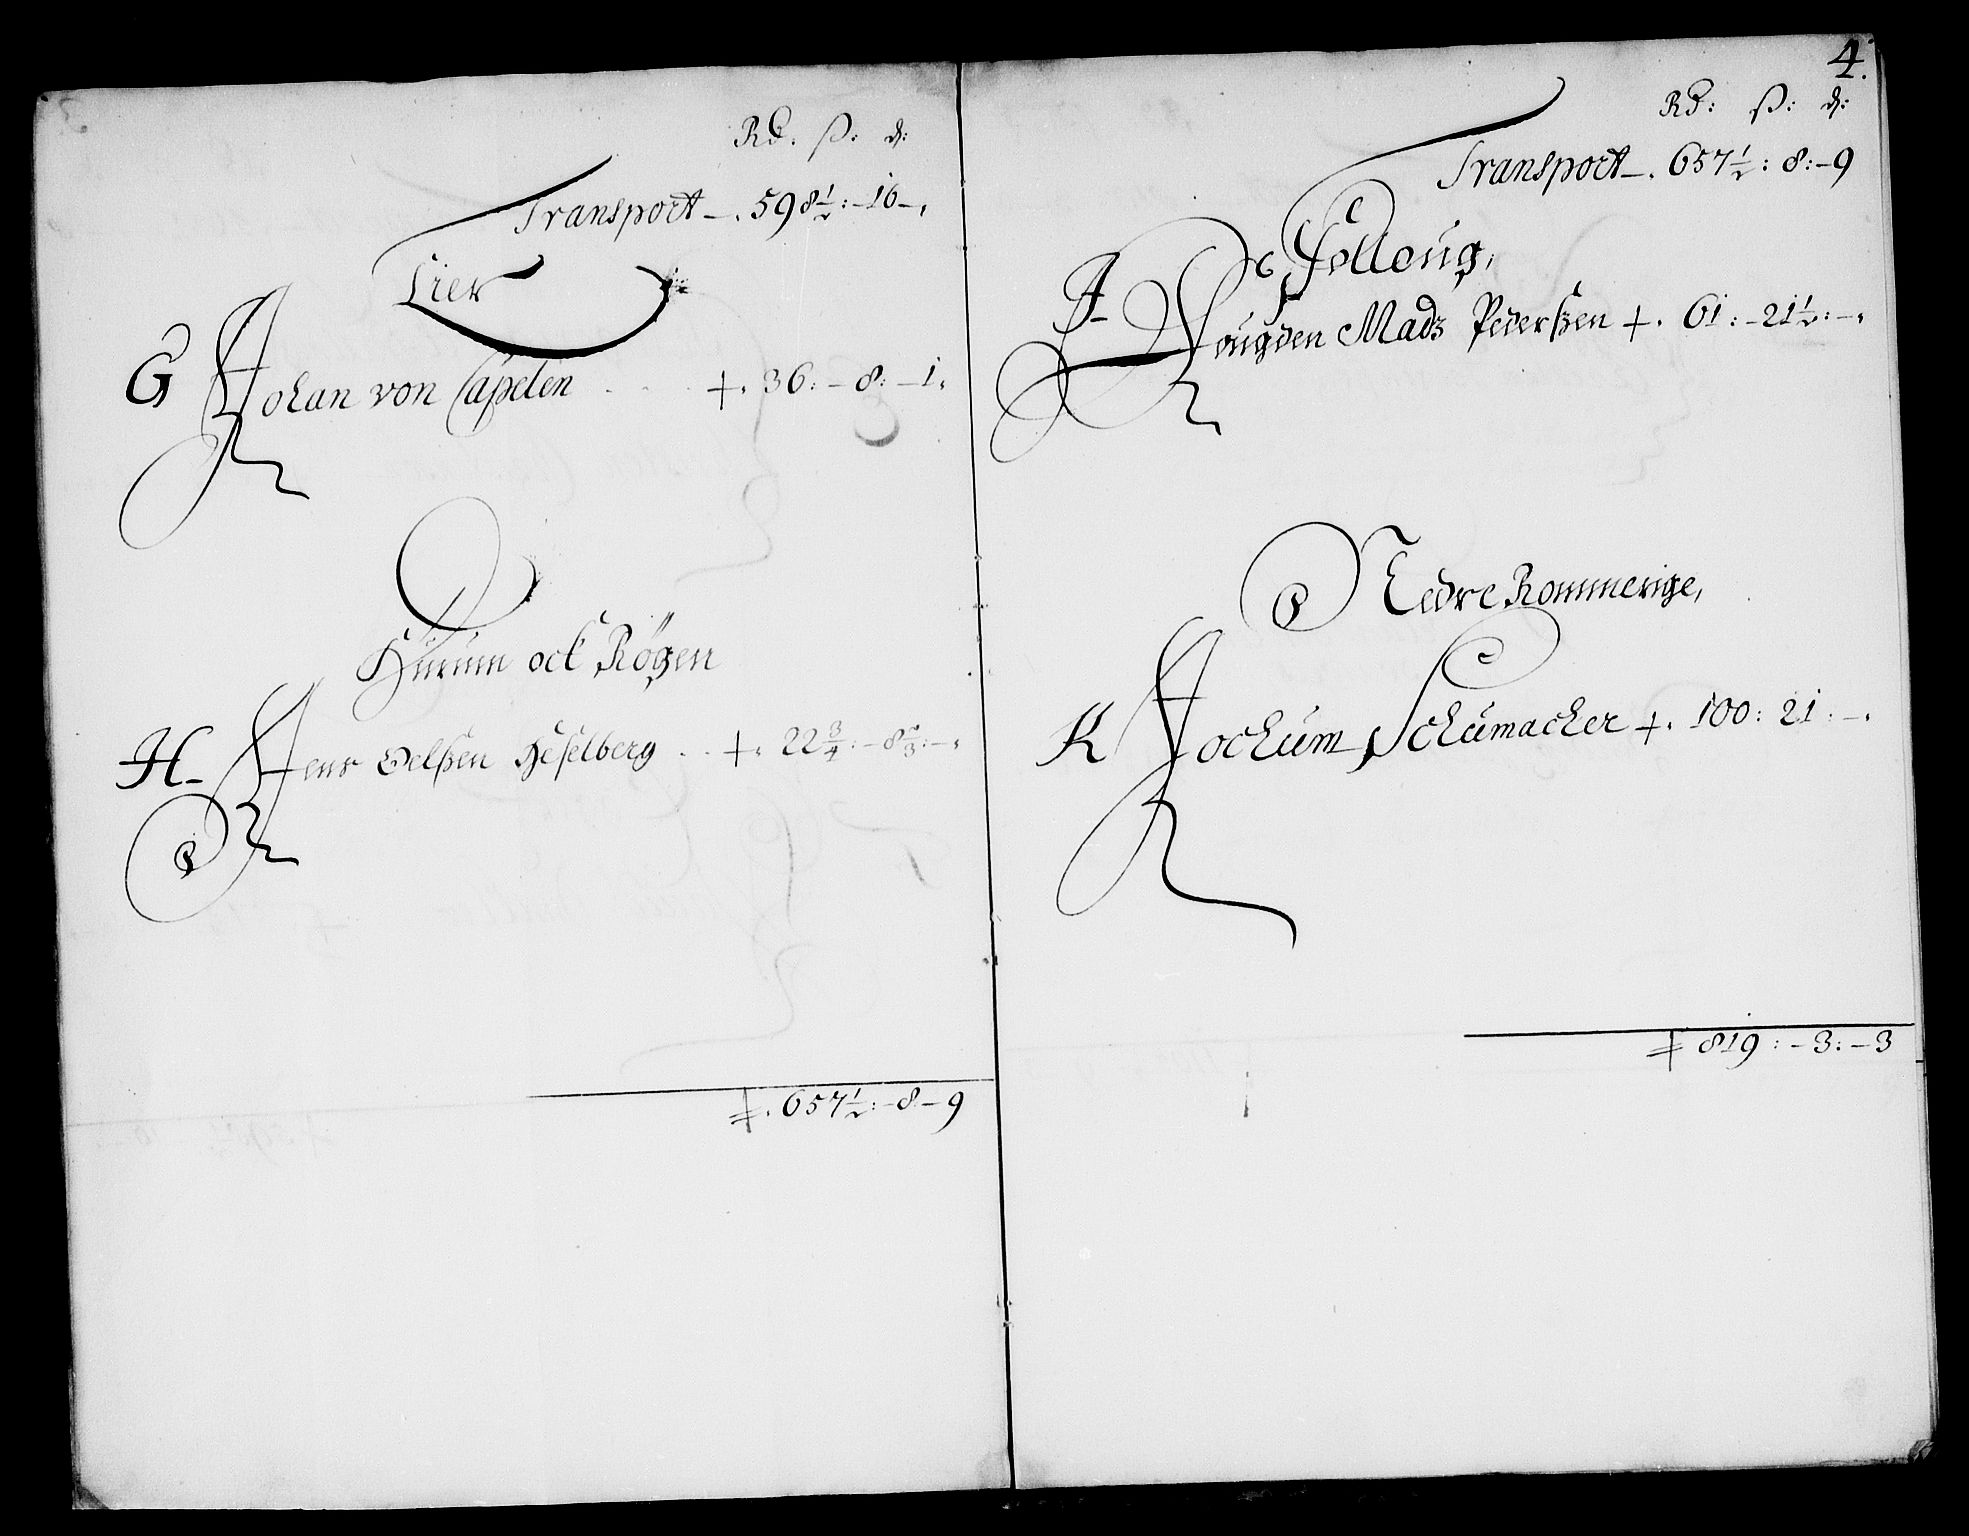 Rd. ß: d:
Transport – . 598½: – 16 – ,
Lier
G Johan von Capelen . . . +. 36: – 8: – 1,
Hurum ock Rögen
H – Jens Oelßen Heselberg . . +. 22¾: – 8⅔: – ,
+. 657½: – 8 – 9
4.
Rd: ß: d:
Transport – . 657½: 8: – 9
Folloug,
J – Fougden Mads Pederßen +. 61: – 21½: – ,
Nedre Rommerige,
K Jochum Schumacher +. 100: 21: – ,
+ 819: – 3: – 3